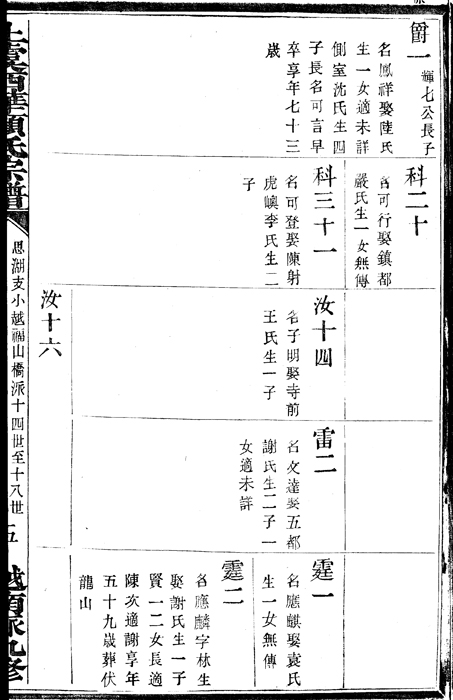 爵一
輝七公長子
名鳳祥娶陸氏
生一女適未詳
側室沈氏生四
子長名可言早
卒享年七十三
歲
科二十
名可行娶鎮都
嚴氏生一女無傳
科三十一
名可登娶陳射
虎嶼李氏生二
子
汝十四
名子明娶寺前
王氏生一子
汝十六
雷二
名文達娶五都
謝氏生二子一
女適未詳
霆一
名應麒娶袁氏
生一女無傳
霆二
名應麟字林生
娶謝氏生一子
賢一二女長適
陳次適謝享年
五十九歲葬伏
龍山
上虞西華顧氏宗譜
思湖支小越福山橋派十四世至十八世
五